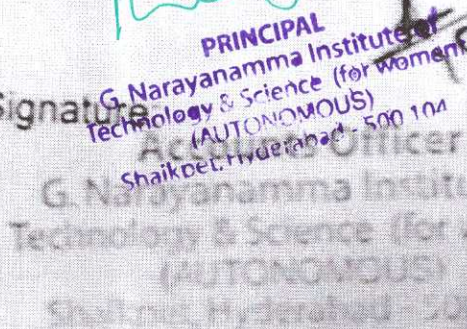 PRINCIPAL
G. Narayanamma Institute of
Technology & Science (for women)
(AUTONOMOUS)
Shaikpet, Hyderabad - 500 104
Signature
Accounts Officer
G. Narayanamma Institute
Technology & Science (for
(AUTONOMOUS)
Shaikpet, Hyderabad - 50